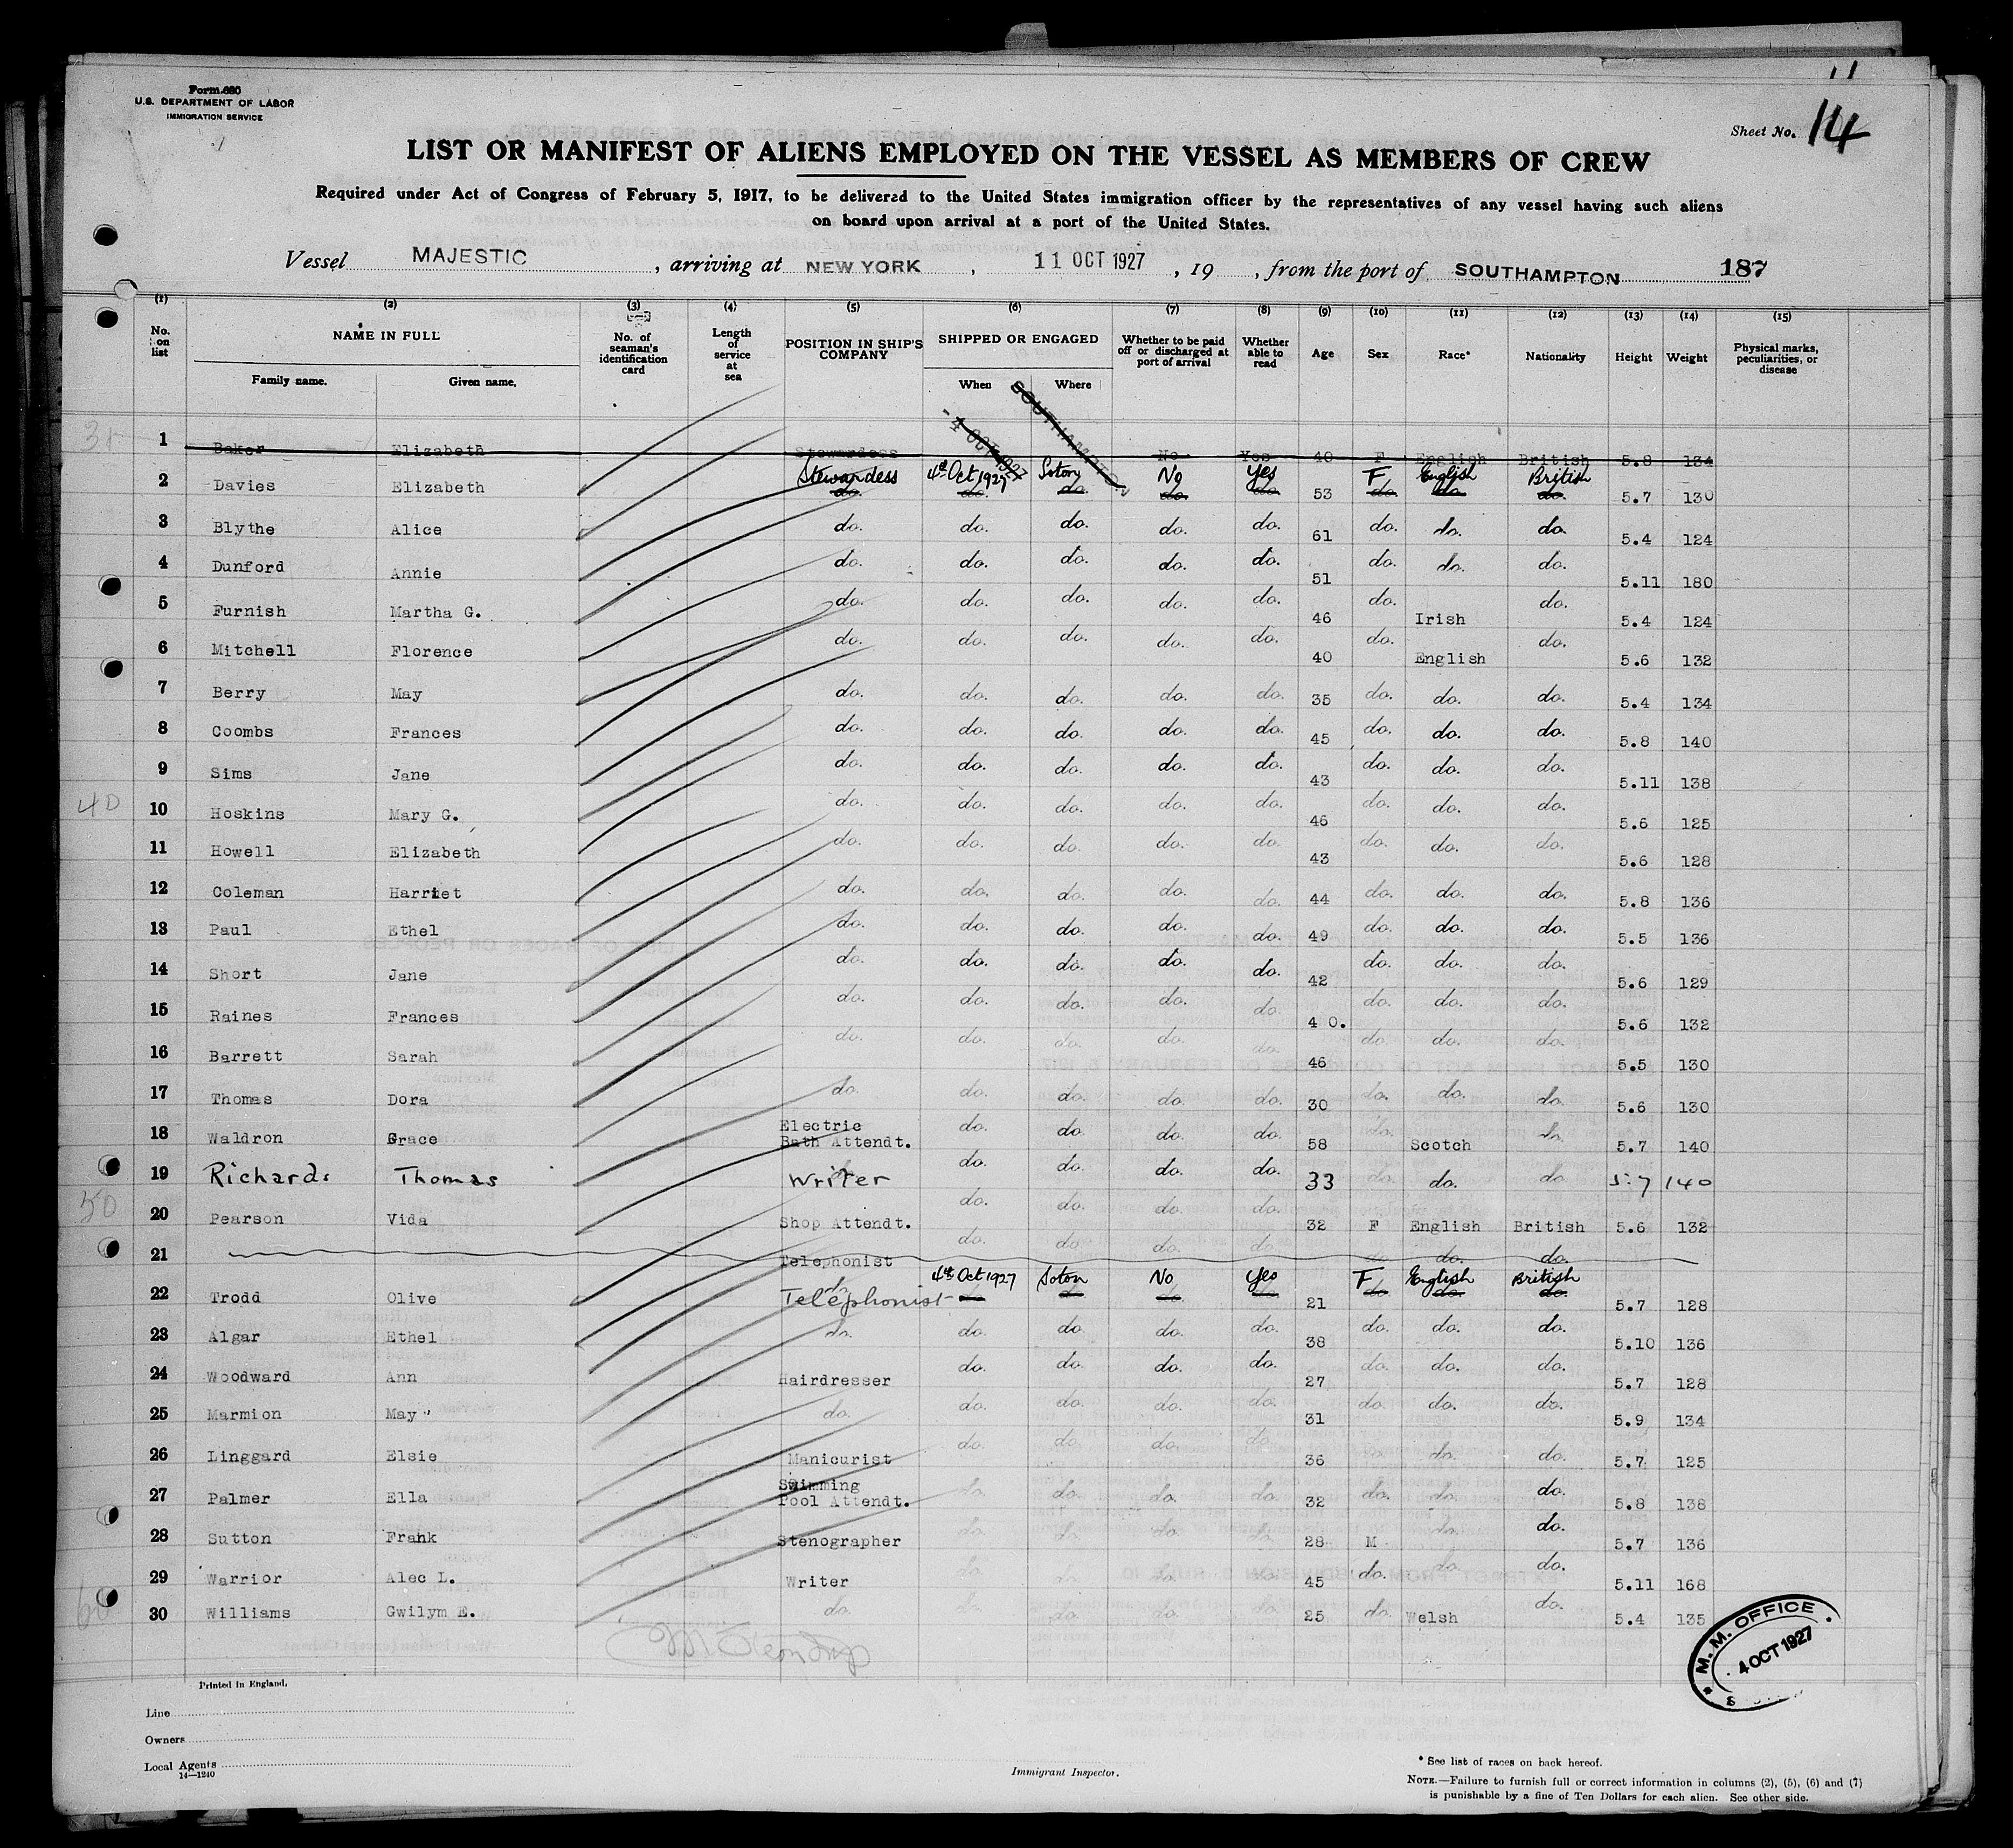 Form 680
U.S. DEPARTMENT OF LABOR
IMMIGRATION SERVICE
Sheet No. 14
LIST OR MANIFEST OF ALIENS EMPLOYED ON THE VESSEL AS MEMBERS OF CREW
Required under Act of Congress of February 5, 1917, to be delivered to the United States immigration officer by the representatives of any vessel having such aliens
on board upon arrival at a port of the United States.
Vessel MAJESTIC, arriving at NEW YORK, 11 OCT 1927, 19 , from the port of SOUTHAMPTON 187
(1) (2) (3) (4) (5) (6) (7) (8) (9) (10) (11) (12) (13) (14) (15)
No. on list NAME IN FULL Family name. Given name. No. of seaman's identification card Length of service at sea POSITION IN SHIP'S COMPANY SHIPPED OR ENGAGED When Where Whether to be paid off or discharged at port of arrival Whether able to read Age Sex Race* Nationality Height Weight Physical marks, peculiarities, or disease
1 Baker Elizabeth Stewardess - 4 OCT 1927 SOUTHAMPTON No Yes 40 F English British 5.8 134
2 Davies Elizabeth Stewardess do. 4th Oct 1927 do. Soton do. No do. Yes do. 53 F do. English do. British do. 5.7 130
3 Blythe Alice do. do. do. do. do. 61 do. do. do. 5.4 124
4 Dunford Annie do. do. do. do. do. 51 do. do. do. 5.11 180
5 Furnish Martha G. do. do. do. do. do. 46 do. Irish do. 5.4 124
6 Mitchell Florence do. do. do. do. do. 40 do. English do. 5.6 132
7 Berry May do. do. do. do. do. 35 do. do. do. 5.4 134
8 Coombs Frances do. do. do. do. do. 45 do. do. do. 5.8 140
9 Sims Jane do. do. do. do. do. 43 do. do. do. 5.11 138
40
10 Hoskins Mary G. do. do. do. do. do. 46 do. do. do. 5.6 125
11 Howell Elizabeth do. do. do. do. do. 43 do. do. do. 5.6 128
12 Coleman Harriet do. do. do. do. do. 44 do. do. do. 5.8 136
13 Paul Ethel do. do. do. do. do. 49 do. do. do. 5.5 136
14 Short Jane do. do. do. do. do. 42 do. do. do. 5.6 129
15 Raines Frances do. do. do. do. do. 4 0. do. do. do. 5.6 132
16 Barrett Sarah do. do. do. do. do. 46 do. do. do. 5.5 130
17 Thomas Dora do. do. do. do. do. 30 do. do. do. 5.6 130
18 Waldron Grace Electric Bath Attendt. do. do. do. do. 58 Scotch do. 5.7 140
19 Richards Thomas Writer do. do. do. do. 33 do. do. do. 5.7 140
50
20 Pearson Vida Shop Attendt. do. do. do. do. 32 F English British 5.6 132
21 Telephonist do. do. do. do. do. do. do.
22 Trodd Olive do. Telephonist 4th Oct 1927 Soton do. No do. Yes do. 21 F do. English do. British do. 5.7 128
23 Algar Ethel do. do. do. do. do. 38 do. do. do. 5.10 136
24 Woodward Ann Hairdresser do. do. do. do. 27 do. do. do. 5.7 128
25 Marmion May do. do. do. do. do. 31 do. do. do. 5.9 134
26 Linggard Elsie Manicurist do. do. do. do. 36 do. do. 5.7 125
27 Palmer Ella Swimming Pool Attendt. do. do. do. do. 32 do. do. do. 5.8 138
28 Sutton Frank Stenographer do. do. do. do. 28 M do. do. 5.7 136
29 Warrior Alec L. Writer do. do. do. do. 45 do. do. do. 5.11 168
60
30 Williams Gwilym E. do. do. do. do. do. 25 do. Welsh do. 5.4 135
M. M. OFFICE
4 OCT 1927
Printed in England.
Line
Owners
Local Agents
14—1240
Immigrant Inspector.
* See list of races on back hereof.
NOTE.—Failure to furnish full or correct information in columns (2), (5), (6) and (7)
is punishable by a fine of Ten Dollars for each alien. See other side.